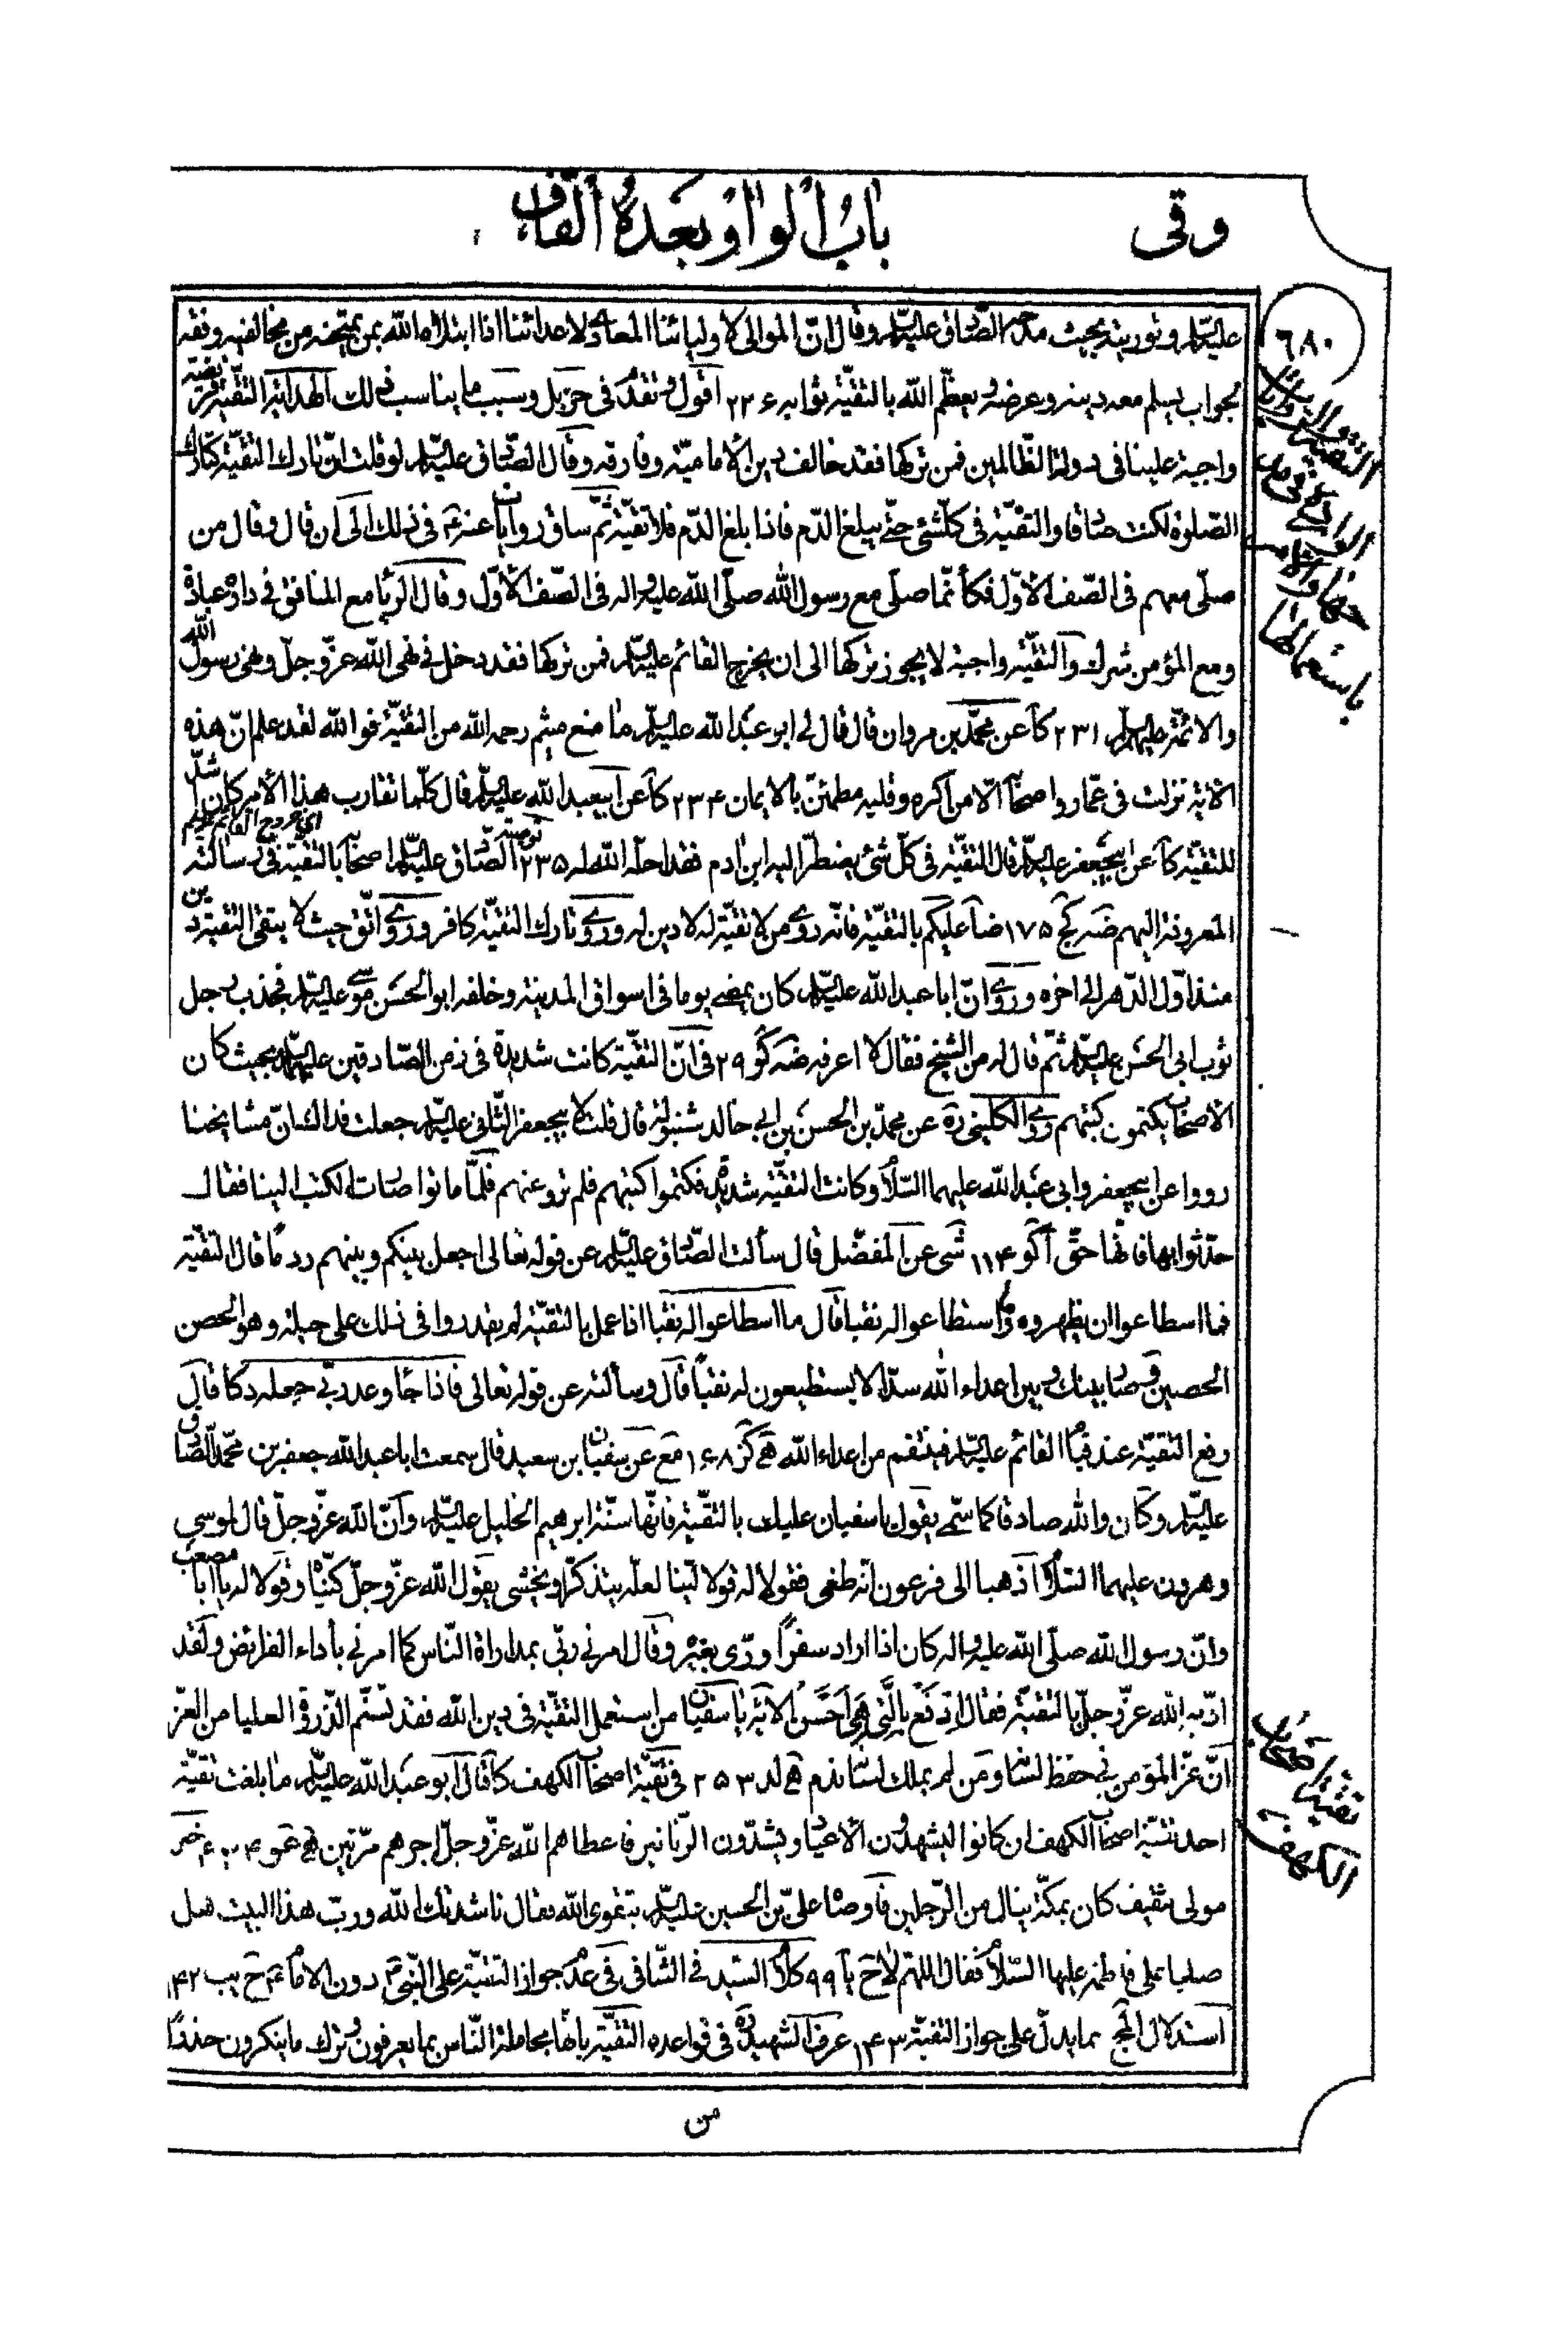 وقى
باب الواو بعده القاف
٦٨٠
عليه السلام وتوريته بحيث مدحه الصادق عليه السلام وقال انّ الموالى لاوليائنا المعادى لاعدائنا اذا ابتلاه الله بمن يمتحنه من مخالفيه وفقه
لجواب يسلم معه دينه وعرضه ويعظّم الله بالتقيّة ثوابه ٢٢٦ اقول وتقدّم فى حزبل وسبب ما يناسب ذلك الهداية التقيّة فريضة
واجبة علينا فى دولة الظالمين فمن تركها فقد خالف دين الامامية وفارقه وقال الصادق عليه السلام لو قلت انّ تارك التقيّة كتارك
الصلوة لكنت صادقا والتقيّة فى كلّ شئ حتّى يبلغ الدّم فاذا بلغ الدّم فلا تقيّة ثمّ ساق روايات عنه فى ذلك الى ان قال وقال من
صلّى معهم فى الصّف الاوّل فكأنّما صلّى مع رسول الله صلّى الله عليه واله فى الصّف الاوّل وقال الريا مع المنافق فى داره عبادة
ومع المؤمن شرك والتقيّة واجبة لا يجوز تركها الى ان يخرج القائم عليه السلام فمن تركها فقد دخل فى نهى الله عزّ وجلّ ونهى رسول الله
والائمّة عليهم السلام ٢٣١ كا عن محمّد بن مروان قال قال لى ابو عبد الله عليه السلام ما منع ميثم رحمه الله من التقيّة فوالله لقد علم انّ هذه
الاية نزلت فى عمّار واصحابه الّا من اكره وقلبه مطمئنّ بالايمان ٢٣۴ كا عن ابيعبد الله عليه السلام قال كلّما تقارب هذا الامر كان اشدّ
اى خروج القائم
للتقيّة كا عن ابيجعفر عليه السلام قال التقيّة فى كلّ شئ يضطرّ اليه ابن ادم فقد احلّه الله له ٢٣۵ توصية الصادق عليه السلام اصحابه بالتقيّة فى رسالته
المعروفة اليهم ضه كج ١٧۵ ضا عليكم بالتقيّة فانّه روى من لا تقيّة له لا دين له وروى تارك التقيّة كافر وروى اتّق حيث لا يتقى التقية دين
منذ اوّل الدّهر الى اخره وروى انّ ابا عبد الله عليه السلام كان يمضى يوما فى اسواق المدينة وخلفه ابو الحسن موسى عليه السلام فجذب رجل
ثوب ابى الحسن عليه السلام ثمّ قال له من الشيخ فقال لا اعرفه ضه كو ٢٩ فى انّ التقيّة كانت شديدة فى زمن الصّادقين عليهما السلام بحيث كان
الاصحاب يكتمون كتبهم روى الكلينى ره عن محمّد بن الحسن بن ابى خالد شنبولة قال قلت لابيجعفر الثّانى عليه السلام جعلت فداك انّ مشايخنا
رووا عن ابيجعفر وابى عبد الله عليهما السّلام وكانت التقيّة شديدة فكتموا كتبهم فلم ترو عنهم فلمّا ماتوا صارت الكتب الينا فقال
حدّثوا بها فانّها حقّ اكو ١١۴ شى عن المفضّل قال سألت الصّادق عليه السلام عن قوله تعالى اجعل بينكم وبينهم ردما قال التقيّة
فما اسطاعوا ان يظهروه وما استطاعوا له نقبا قال ما اسطاعوا له نقبا اذا عمل بالتقيّة لم يقدروا فى ذلك على حيلة وهو الحصن
الحصين وصار بينك وبين اعداء الله سدّا لا يستطيعون له نقباً قال وسألته عن قوله تعالى فاذا جاء وعد ربّى جعله دكا قال
رفع التقيّة عند قيام القائم عليه السلام فينتقم من اعداء الله هج كز ١٦٨ مع عن سفيان بن سعيد قال سمعت ابا عبد الله جعفر بن محمّد الصّادق
عليه السلام وكان والله صادقا كما سمّى يقول يا سفيان عليك بالتقيّة فانّها سنّة ابراهيم الخليل عليه السلام وانّ الله عزّ وجلّ قال لموسى
وهرون عليهما السّلام اذهبا الى فرعون انّه طغى فقولا له قولا ليّنا لعلّه يتذكّر او يخشى يقول الله عزّ وجلّ كنّياه وقولا له يا ابا مصعب
وانّ رسول الله صلّى الله عليه واله كان اذا اراد سفراً ورّى بغيره وقال امرنى ربّى بمداراة النّاس كما امرنى بأداء الفرائض ولقد
ادّبه الله عزّ وجلّ بالتقيّة فقال ادفع بالّتى هى احسن الاية يا سفيان من استعمل التقيّة فى دين الله فقد تسنّم الذّروة العليا من العزّ
انّ عزّ المؤمن فى حفظ لسانه ومن لم يملك لسانه ندم هج لد ٢۵٣ فى تقيّة اصحاب الكهف كا قال ابو عبد الله عليه السلام ما بلغت تقيّة
احد تقيّة اصحاب الكهف ان كانوا ليشهدون الاعياد ويشدّون الزّنانير فاعطاهم الله عزّ وجلّ اجرهم مرّتين
مولى ثقيف كان بمكّة ينال من الرّجلين فاوصاه علىّ بن الحسين عليه السلام بتقوى الله فقال ناشدتك الله وربّ هذا البيت هل
صليا على فاطمة عليها السّلام فقال اللهمّ لا ح يا ٩٩ كلام السّيد فى الشّافى فى عدم جواز التقيّة على النّبى دون الامام ح يب ١۴٢
استدلال المج بما يدلّ على جواز التقيّة ١۴٣ عرف الشهيد ره فى قواعده التقيّة بانها مجاملة النّاس بما يعرفون وترك ما ينكرون حذرا
من
تقيّة اصحاب
الكهف